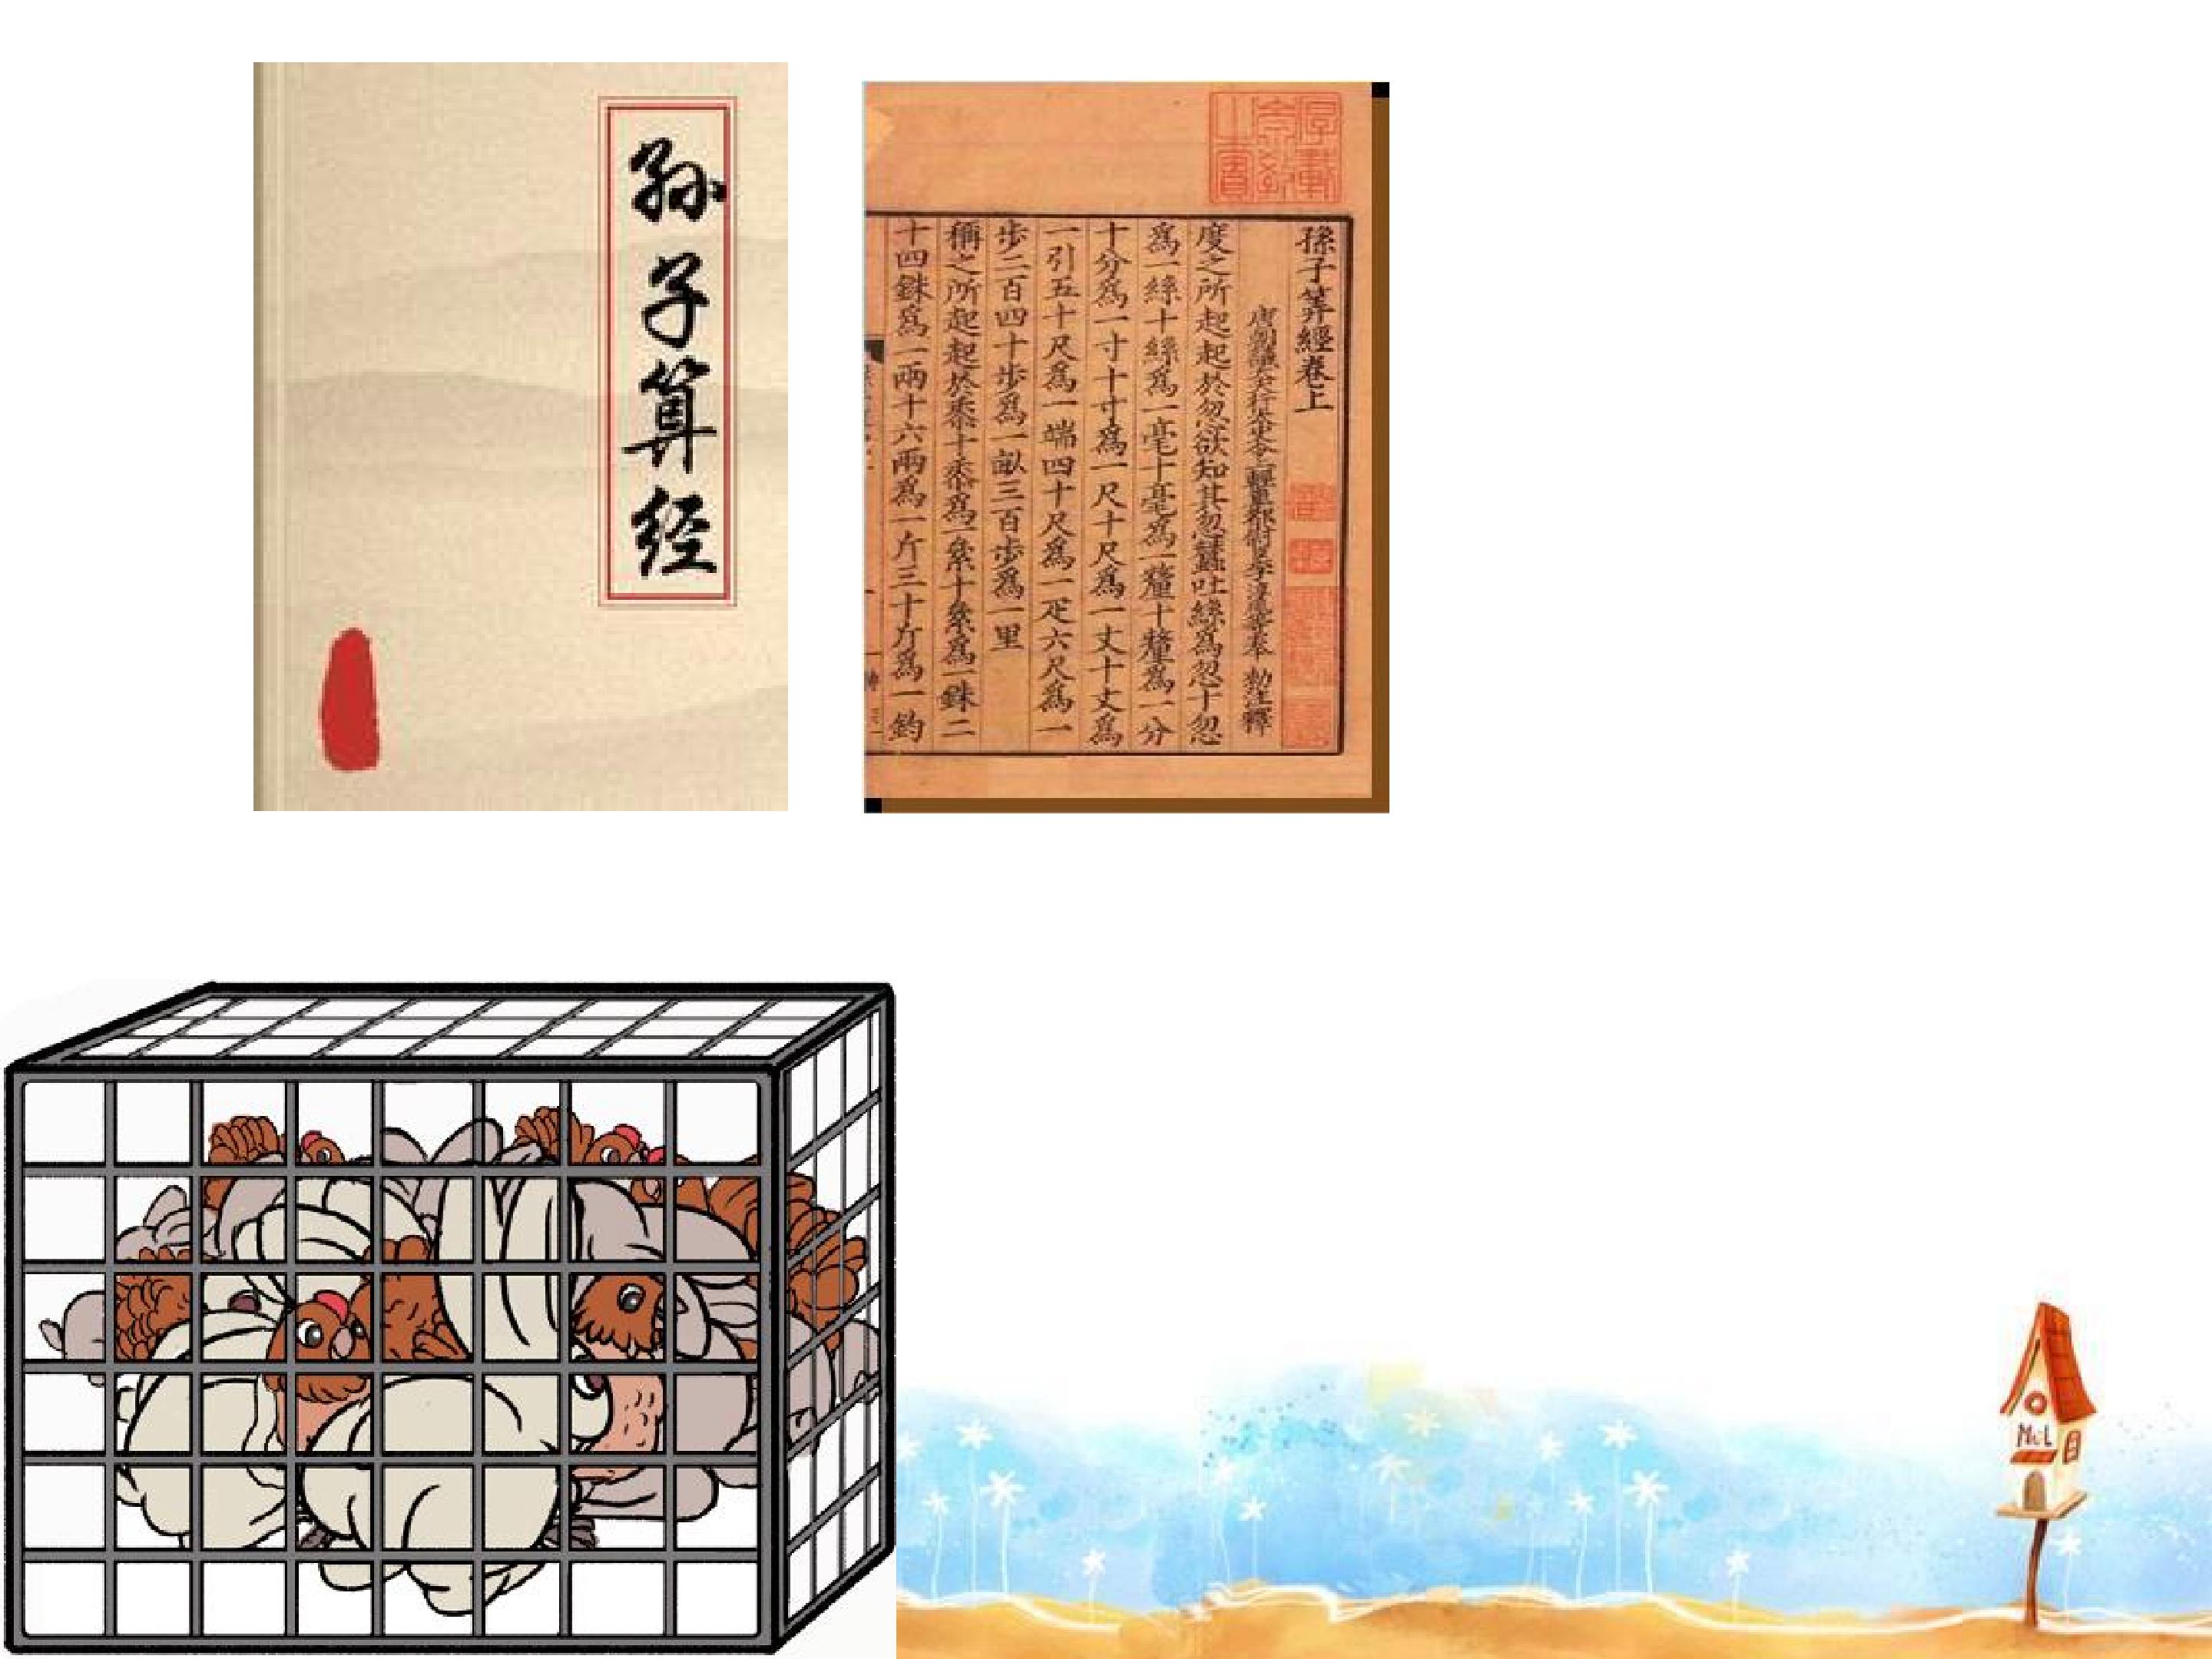 孙子算经
孫子筭經卷上
度之所起起於忽欲知其忽蠶吐絲爲忽十忽
爲一絲十絲爲一毫十毫爲一釐十釐爲一分
十分爲一寸十寸爲一尺十尺爲一丈十丈爲
一引五十尺爲一端四十尺爲一疋六尺爲一
步二百四十步爲一畝三百步爲一里
稱之所起起於黍十黍爲一絫十絫爲一銖二
十四銖爲一兩十六兩爲一斤三十斤爲一鈞